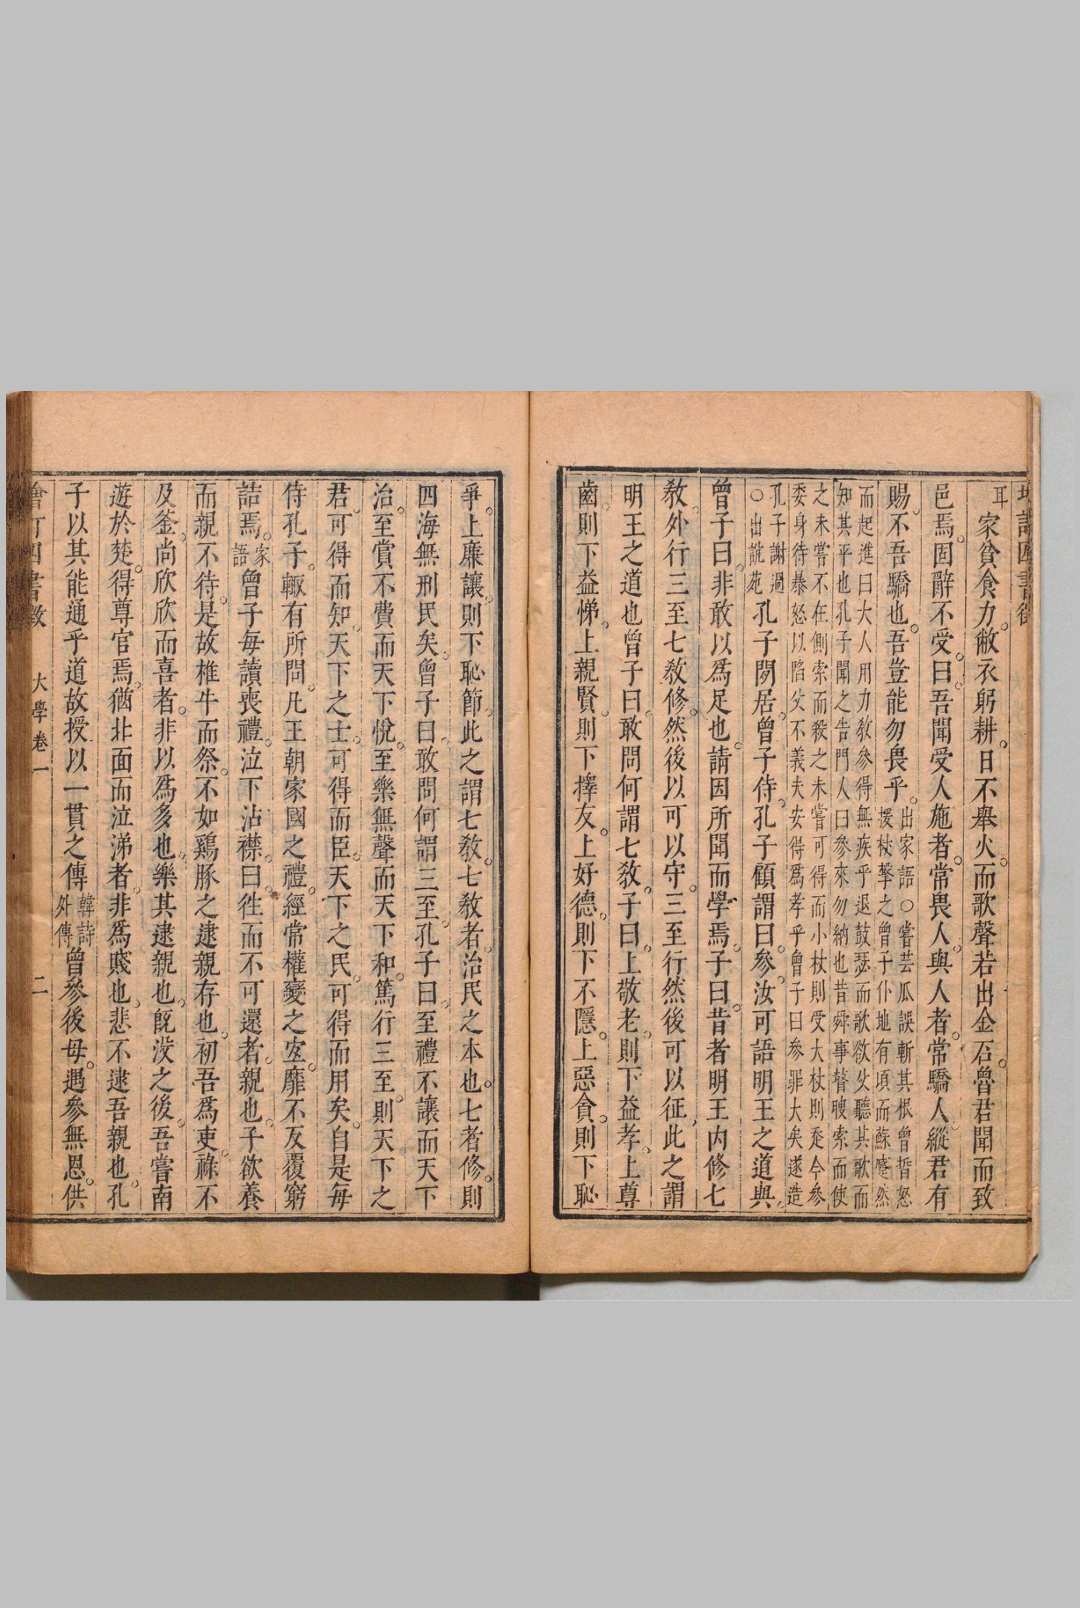 耳
家貧食力敝衣躬耕日不舉火而歌聲若出金石魯君聞而致
邑焉固辭不受曰吾聞受人施者常畏人與人者常驕人縱君有
賜不吾驕也吾豈能勿畏乎
出家語○嘗芸瓜誤斬其根曾晳怒
援杖擊之曾子仆地有頃而蘇蹙然
而起進曰大人用力教參得無疾乎退鼓瑟而歌欲父聽其歌而
知其平也孔子聞之告門人曰參來勿納也昔舜事瞽瞍索而使
之未嘗不在側索而殺之未嘗可得而小杖則受大杖則走今參
委身待暴怒以陷父不義夫安得為孝乎曾子曰參罪大矣遂造
孔子謝過
○出說苑
孔子閒居曾子侍孔子顧謂曰參汝可語明王之道與
曾子曰非敢以為足也請因所聞而學焉子曰昔者明王內修七
教外行三至七教修然後以可以守三至行然後可以征此之謂
明王之道也曾子曰敢問何謂七教子曰上敬老則下益孝上尊
齒則下益悌上親賢則下擇友上好德則下不隱上惡貪則下恥
爭上廉讓則下恥節此之謂七教七教者治民之本也七者修則
四海無刑民矣曾子曰敢問何謂三至孔子曰至禮不讓而天下
治至賞不費而天下悅至樂無聲而天下和篤行三至則天下之
君可得而知天下之士可得而臣天下之民可得而用矣自是每
侍孔子輒有所問凡王朝家國之禮經常權變之宜靡不反覆窮
詰焉
家
語
曾子每讀喪禮泣下沾襟曰徃而不可還者親也子欲養
而親不待是故椎牛而祭不如鷄豚之逮親存也初吾為吏祿不
及釜尚欣欣而喜者非以為多也樂其逮親也旣沒之後吾嘗南
遊於楚得尊官焉猶北面而泣涕者非為賤也悲不逮吾親也孔
子以其能通乎道故授以一貫之傳
韓詩
外傳
曾參後母遇參無恩供
大學卷一
二